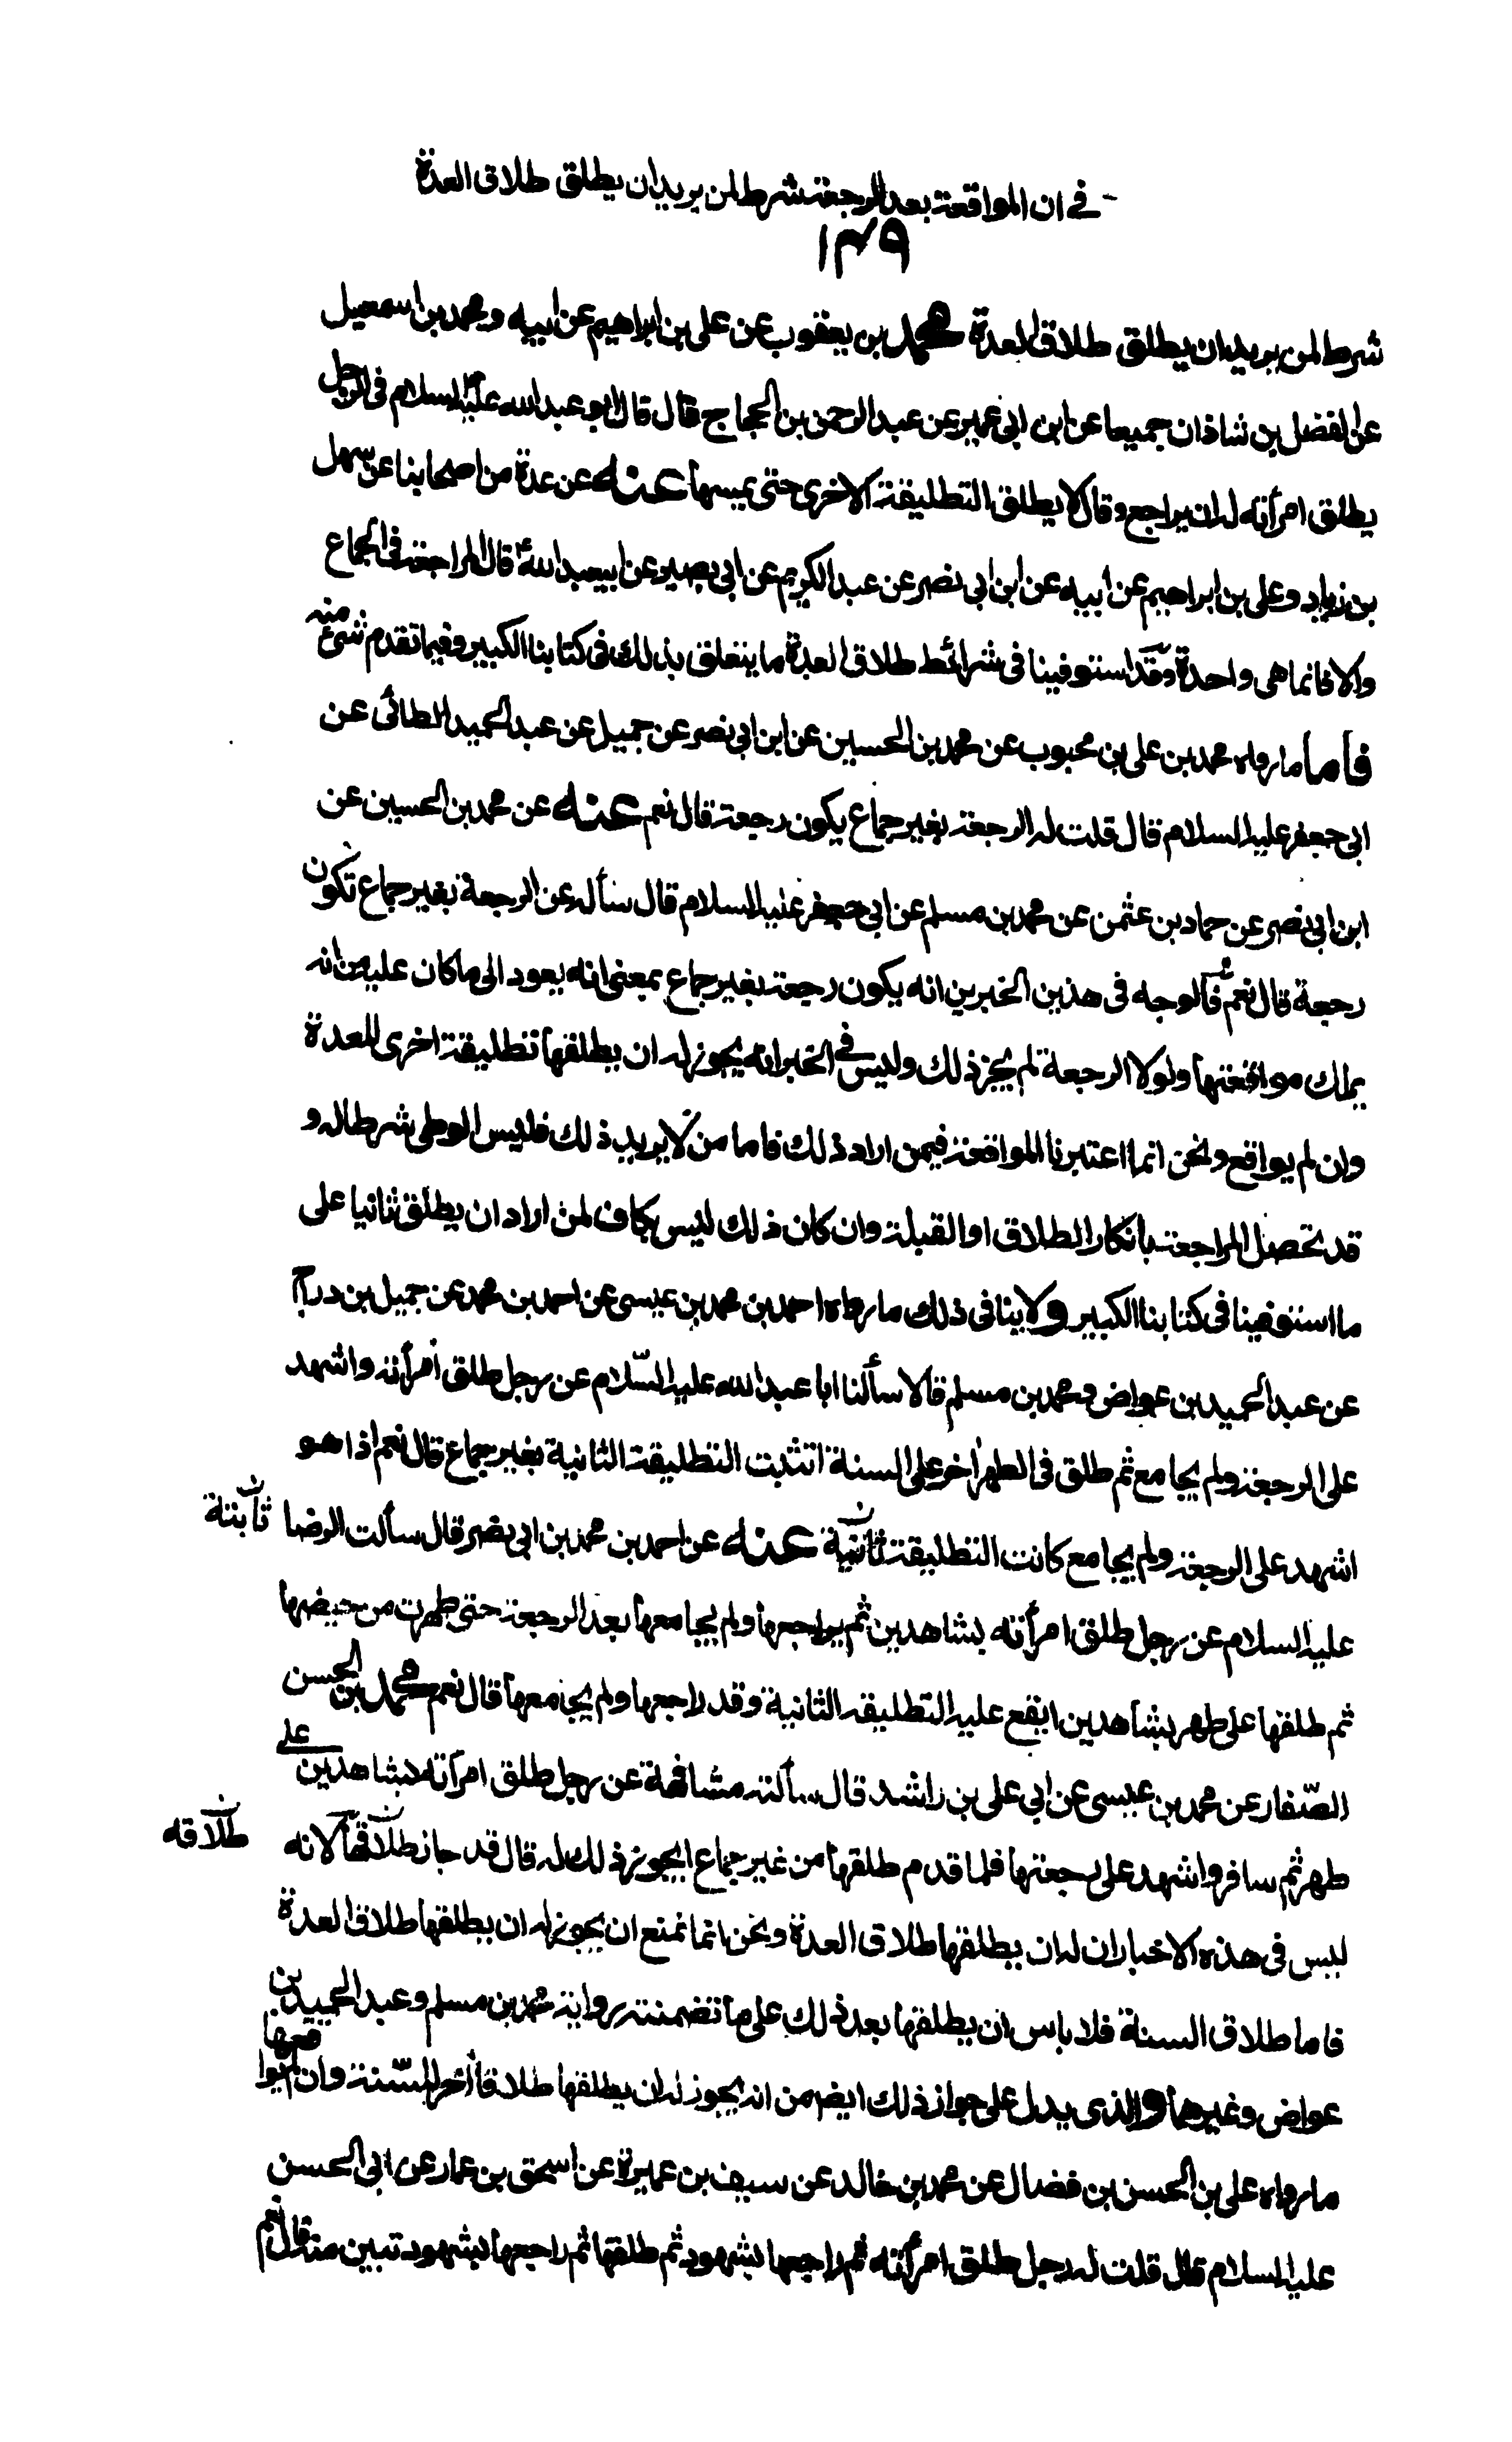 في ان المواقعة بعد الرجعة شرط لمن يريد ان يطلق طلاق العدة
١٣٩
شرط لمن يريد ان يطلق طلاق العدة محمد بن يعقوب عن على بن ابراهيم عن ابيه ومحمد بن اسمعيل
عن الفضل بن شاذان جميعا عن ابن ابى عمير عن عبد الرحمن بن الحجاج قال قال ابو عبد الله عليه السلام فى الرجل
يطلق امرأته له ان يراجع وقال لا يطلق التطليقة الاخرى حتى يمسها عنه عن عدة من اصحابنا عن سهل
بن زياد وعلى بن ابراهيم عن ابيه عن ابن ابى نصر عن عبد الكريم عن ابى بصير عن ابيعبد الله ع قال المراجعة فى الجماع
والا فانما هى واحدة وقد استوفينا فى شرائط طلاق العدة ما يتعلق بذلك فى كتابنا الكبير وفيما تقدم شئ منه
فأما ما رواه محمد بن على بن محبوب عن محمد بن الحسين عن ابن ابى نصر عن جميل عن عبد الحميد الطائى عن
ابى جعفر عليه السلام قال قلت له الرجعة بغير جماع يكون رجعة قال نعم عنه عن محمد بن الحسين عن
ابن ابى نصر عن حماد بن عثمن عن محمد بن مسلم عن ابى جعفر عليه السلام قال سأله عن الرجعة بغير جماع تكون
رجعة قال نعم فالوجه فى هذين الخبرين انه يكون رجعة بغير جماع بمعنى انه يعود الى ما كان عليه من انه
يملك مواقعتها ولولا الرجعة لم يجز ذلك وليس فى الخبر انه يجوز له ان يطلقها تطليقة اخرى للعدة
وان لم يواقع ونحن انما اعتبرنا المواقعة فيمن اراد ذلك فاما من لا يريد ذلك فليس الوطى شرطا له و
قد تحصل المراجعة بانكار الطلاق او القبلة وان كان ذلك ليس بكاف لمن اراد ان يطلق ثانيا على
ما استوفينا فى كتابنا الكبير ولا ينافى ذلك ما رواه احمد بن محمد بن عيسى عن احمد بن محمد عن جميل بن دراج
عن عبد الحميد بن عواض ومحمد بن مسلم قالا سألنا ابا عبد الله عليه السّلام عن رجل طلق امرأته واشهد
على الرجعة ولم يجامع ثم طلق فى الطهر اخر على السنة اتثبت التطليقة الثانية بغير جماع قال نعم اذا هو
اشهد على الرجعة ولم يجامع كانت التطليقة ثانية عنه عن احمد بن محمد بن ابى نصر قال سألت الرضا ثابتة
عليه السلام عن رجل طلق امرأته بشاهدين ثم يراجعها ولم يجامعها بعد الرجعة حتى طهرت من حيضها
ثم طلقها على طهر بشاهدين ايقع عليه التطليقه الثانية وقد راجعها ولم يجامعها قال نعم محمد بن الحسن
الصّفار عن محمد بن عيسى عن ابى على بن راشد قال سألته مشافهة عن رجل طلق امرأته بشاهدين على
طهر ثم سافر واشهد على رجعتها فلما قدم طلقها من غير جماع ايجوز ذلك له قال قد جاز طلاقها لانه طلاقه
ليس فى هذه الاخبار ان له ان يطلقها طلاق العدة ونحن انما نمنع ان يجوز له ان يطلقها طلاق العدة
فاما طلاق السنة فلا باس ان يطلقها بعد ذلك على ما تضمنته رواية محمد بن مسلم وعبد الحميد بن
عواض وغيرهما والذى يدل على جواز ذلك ايضم من انه يجوز له ان يطلقها طلاقا أخر للسّنة وان لم يواقعها
ما رواه على بن الحسن بن فضال عن محمد بن خالد عن سيف بن عميرة عن اسحق بن عمار عن ابى الحسن
عليه السلام قال قلت له رجل طلق امرأته ثم راجعها بشهود ثم طلقها ثم راجعها بشهود تبين منه قال نعم